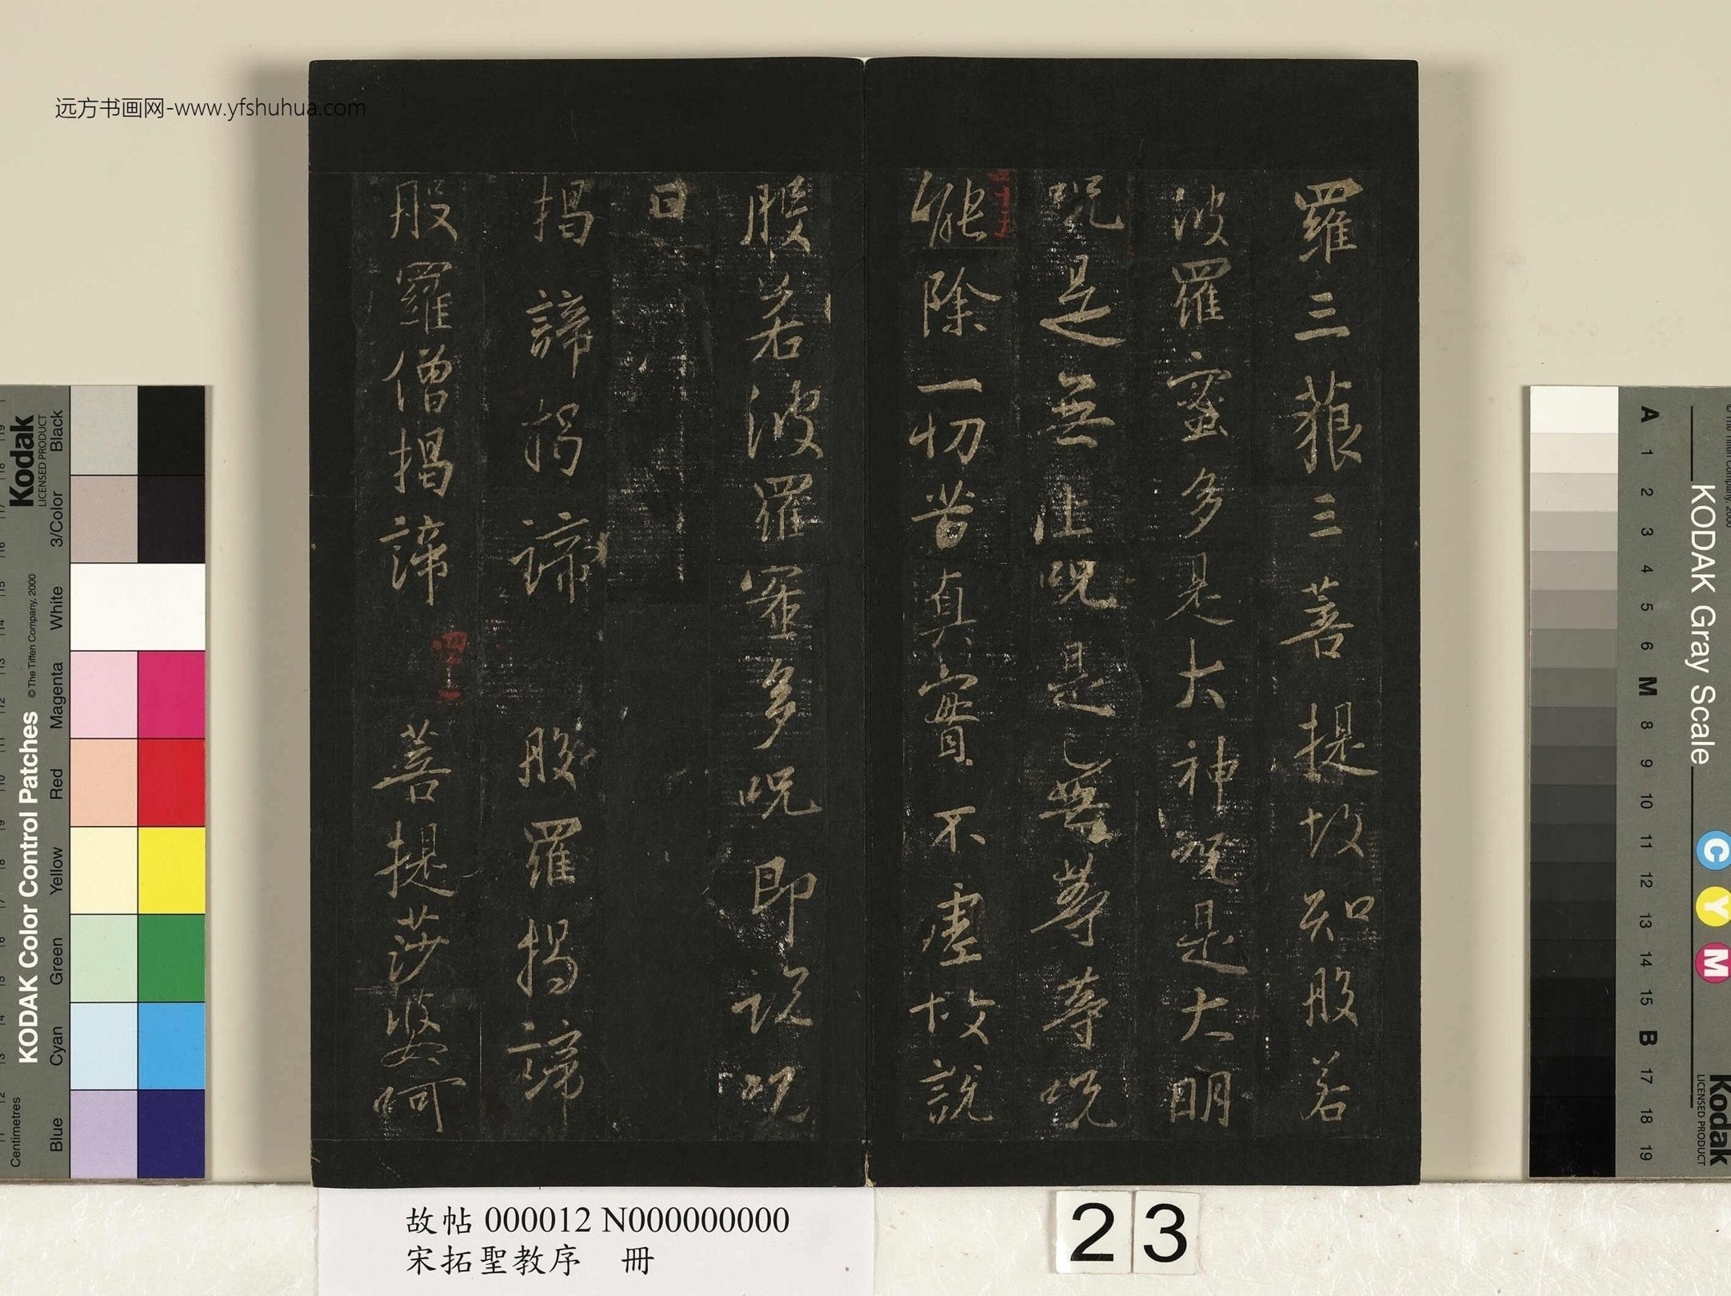 远方书画网-www.yfshuhua.com
羅三藐三菩提故知般若
波羅蜜多是大神呪是大明
呪是無上呪是無等等呪
能除一切苦真實不虛故說
般若波羅蜜多呪即說呪
曰
揭諦揭諦 般羅揭諦
般羅僧揭諦 菩提莎婆呵
故帖 000012 N000000000
宋拓聖教序 冊
23
KODAK Color Control Patches
© The Tiffen Company, 2000
Kodak
LICENSED PRODUCT
Centimetres
Blue
Cyan
Green
Yellow
Red
Magenta
White
3/Color
Black
KODAK Gray Scale
A 1 2 3 4 5 6 M 8 9 10 11 12 13 14 15 B 17 18 19
C
Y
M
Kodak
LICENSED PRODUCT